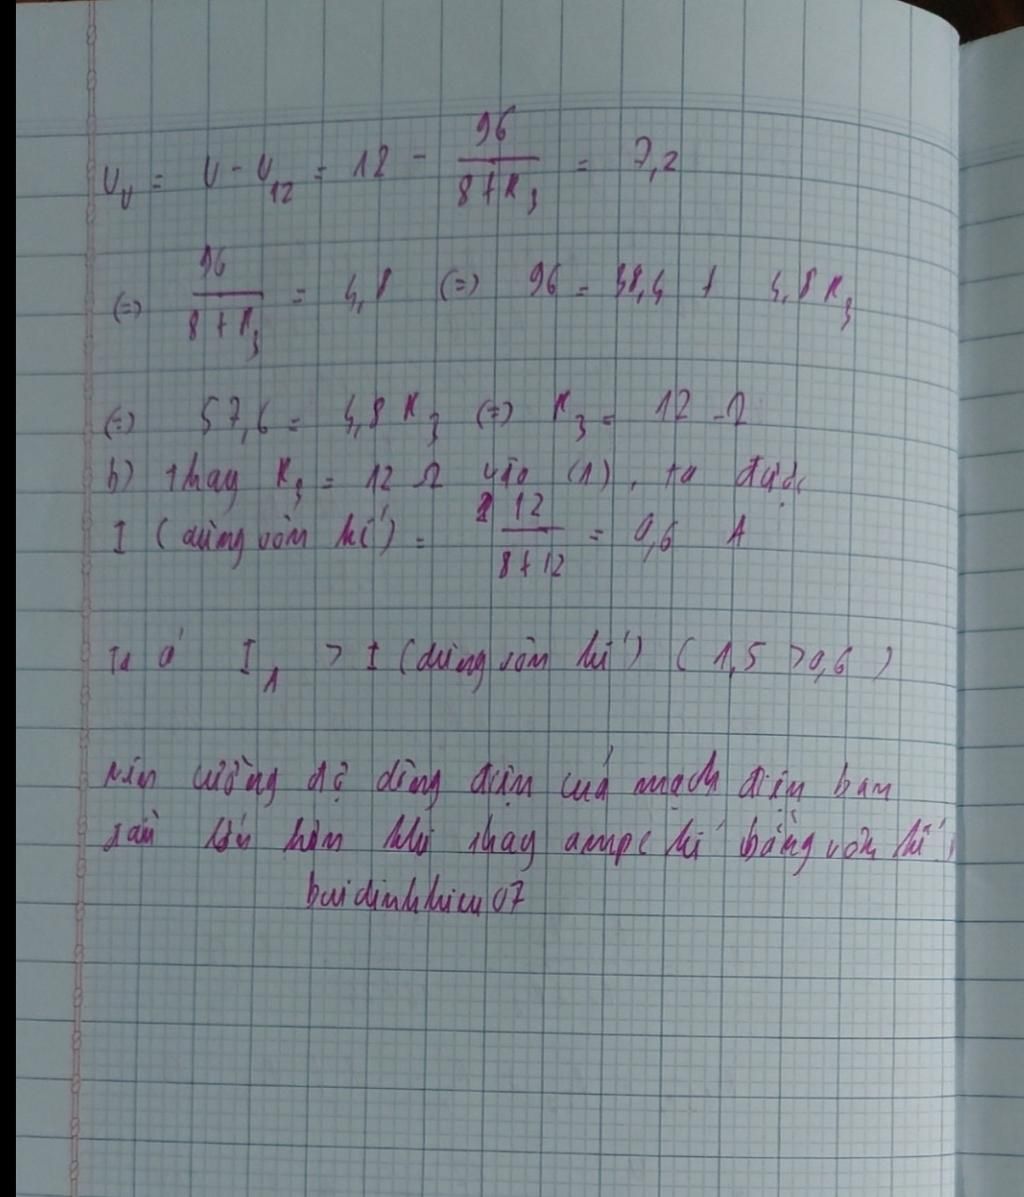 U_V = U - U_12 = 12 - 96/(8 + R_3) = 7,2
(=) 96/(8 + R_3) = 4,8 (=) 96 = 38,4 + 4,8 R_3
(=) 57,6 = 4,8 R_3 (=) R_3 = 12 Ω
b) thay R_3 = 12 Ω vào (1), ta được
I (dùng vôn kế) = 12/(8+12) = 0,6 A
Ta có I_A > I (dùng vôn kế) (1,5 > 0,6)
Nên cường độ dòng điện của mạch điện ban
đầu lớn hơn khi thay ampe kế bằng vôn kế.
buidinhhieu07